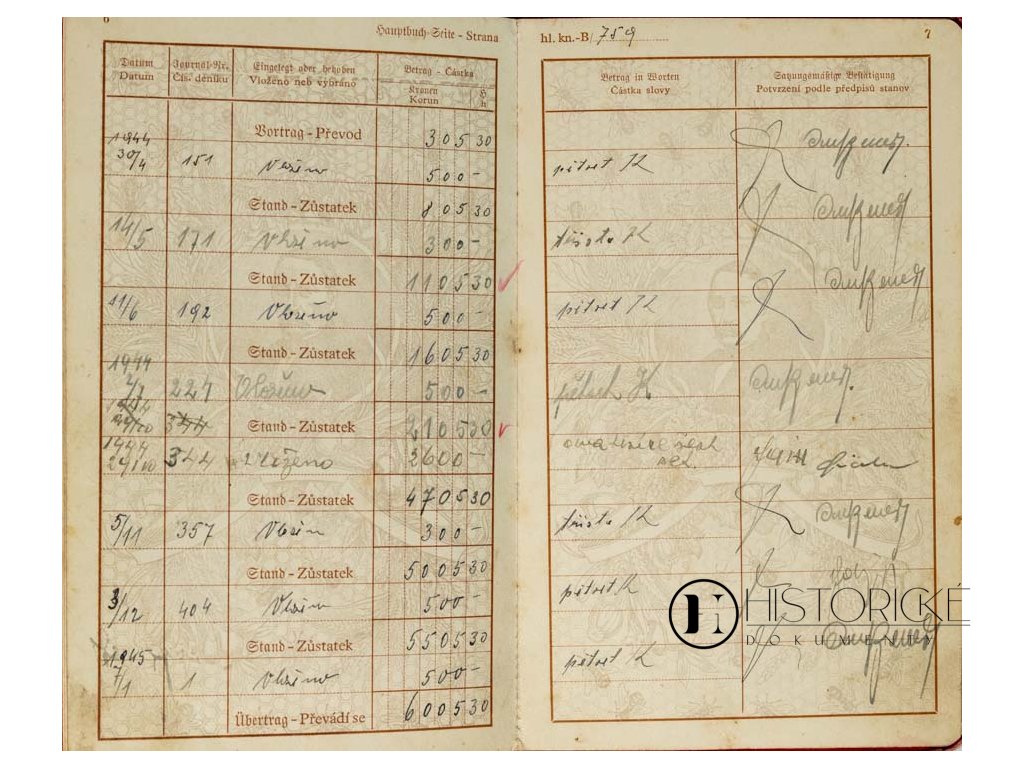 6
Hauptbuch-Seite - Strana
Datum Journal-Nr. Eingelegt oder behoben Betrag - Částka
Datum Čís. deníku Vloženo neb vybráno Kronen H
Korun h
Vortrag - Převod 305 30
1944
30/4 151 Vloženo 500 -
Stand - Zůstatek 805 30
14/5 171 Vloženo 300 -
Stand - Zůstatek 1105 30
11/6 192 Vloženo 500 -
Stand - Zůstatek 1605 30
1944
2/7 224 Vloženo 500 -
344 Stand - Zůstatek 2105 30
1944
29/10 344 Vloženo 2600 -
Stand - Zůstatek 4705 30
5/11 357 300 -
Stand - Zůstatek 5005 30
3/12 404 500 -
Stand - Zůstatek 5505 30
1945
7/1 1 Vloženo 500 -
Übertrag - Převádí se 6005 30
hl. kn.-B/759
7
Betrag in Worten Satzungsmäßige Bestätigung
Částka slovy Potvrzení podle předpisů stanov
pětset K
třista K
pětset K
pětset K
třista K
pětset K
pětset K
HISTORICKÉ
DOKUMENTY